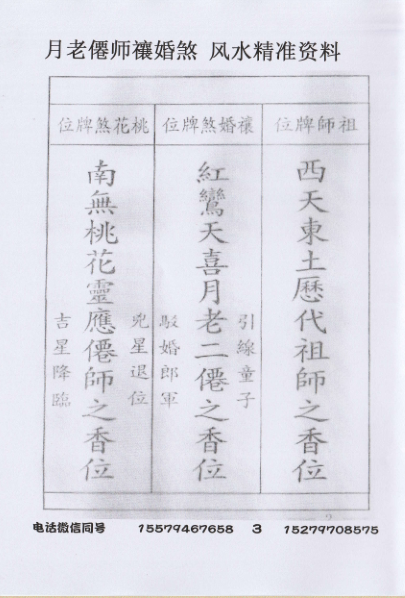 月老僊师禳婚煞 风水精准资料
祖師牌位
西天東土歷代祖師之香位
禳婚煞牌位
引線童子
紅鸞天喜月老二僊之香位
駁婚郎軍
桃花煞牌位
兇星退位
南無桃花靈應僊師之香位
吉星降臨
电话微信同号 15579467658 3 15279708575